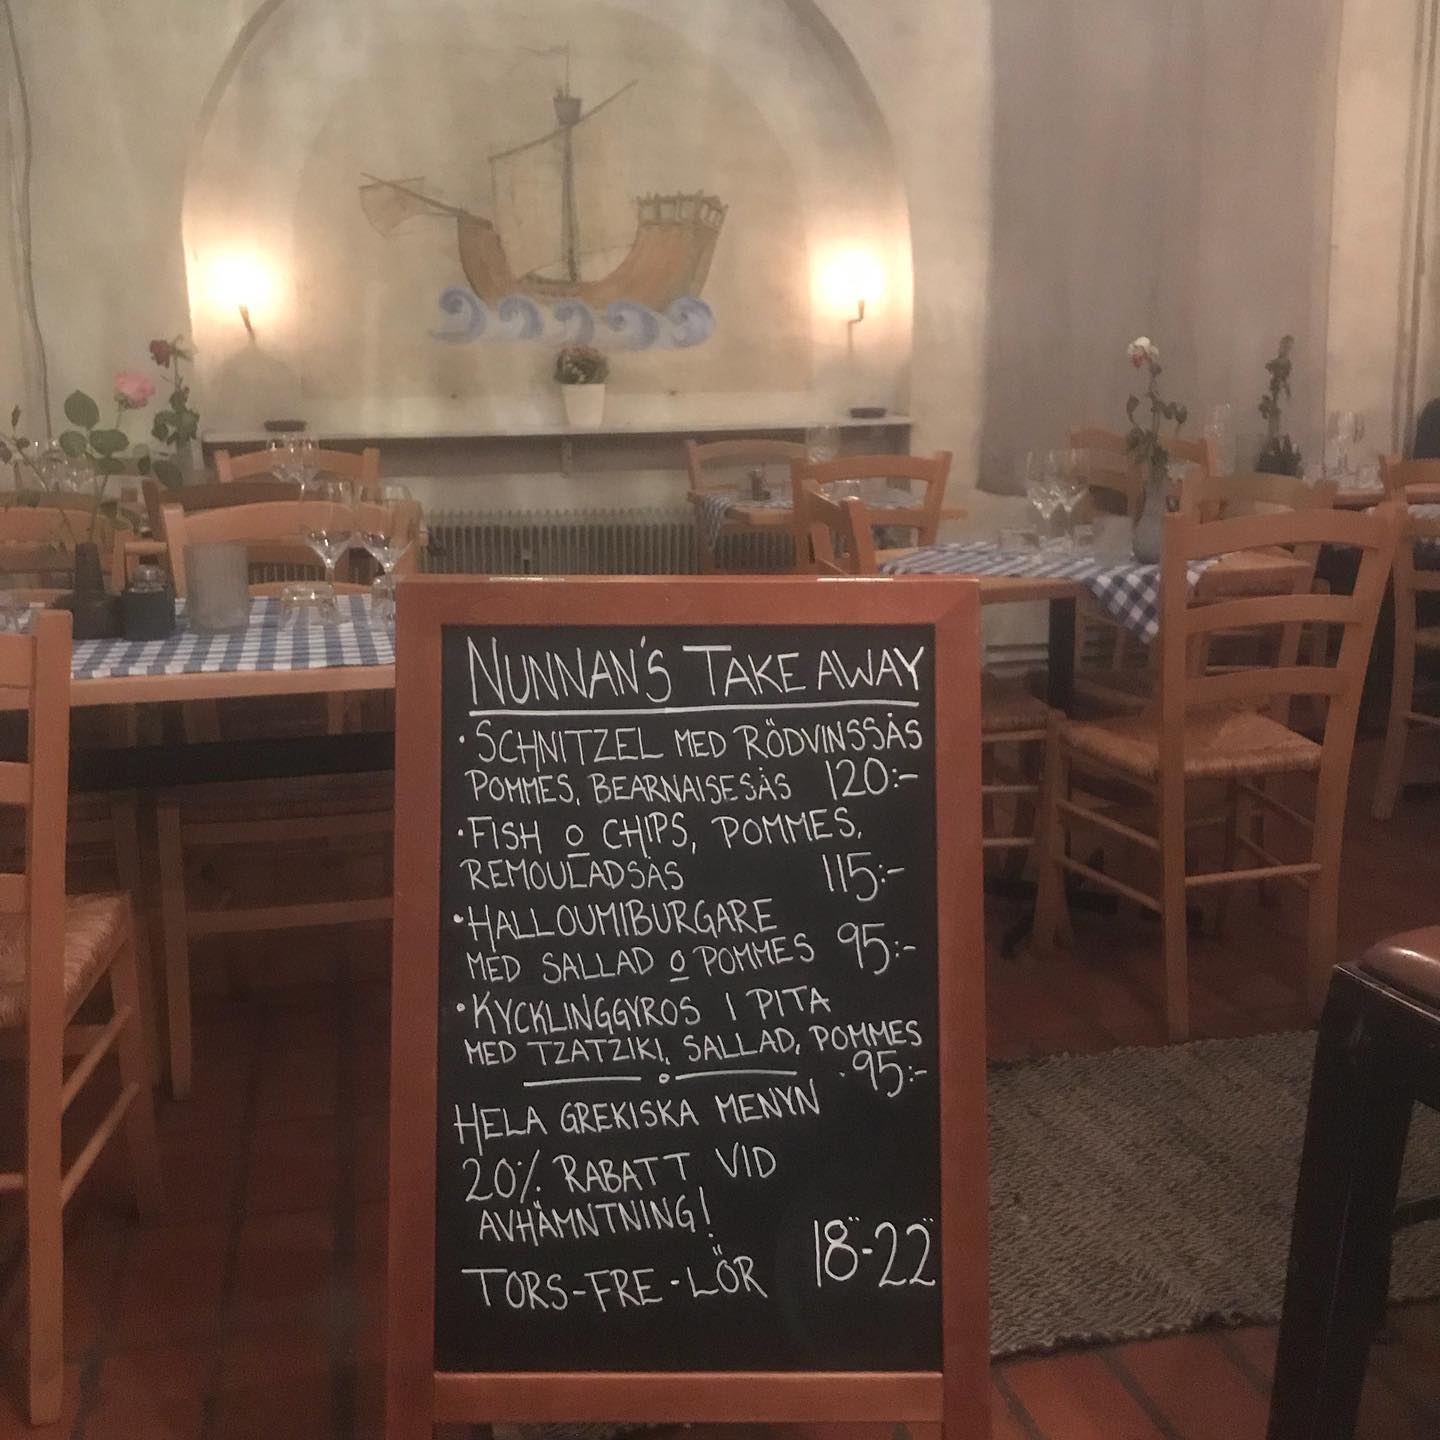 NUNNAN'S TAKE AWAY
• SCHNITZEL MED RÖDVINSSÅS
POMMES, BEARNAISESÅS 120:-
• FISH O CHIPS, POMMES,
REMOULADSÅS 115:-
• HALLOUMIBURGARE
MED SALLAD O POMMES 95:-
• KYCKLINGGYROS I PITA
MED TZATZIKI, SALLAD, POMMES
95:-
HELA GREKISKA MENYN
20% RABATT VID
AVHÄMNTNING!
TORS-FRE-LÖR 18¨-22¨